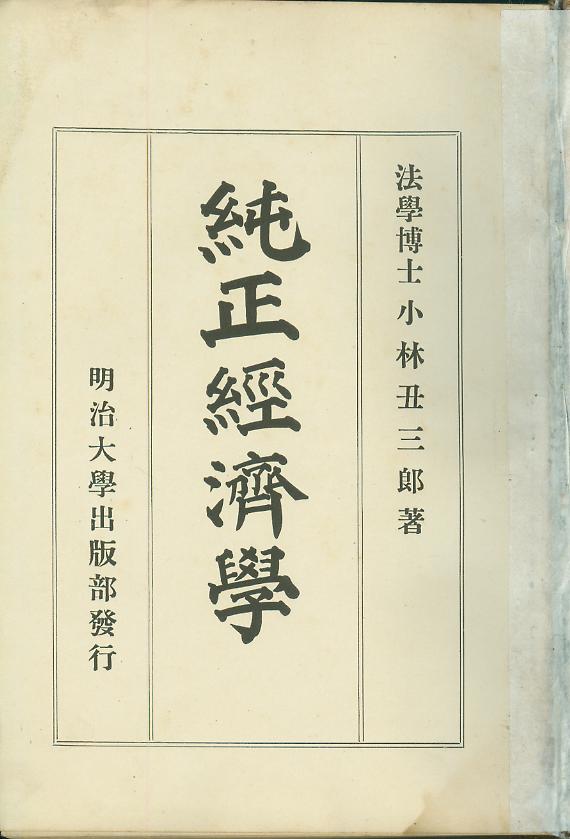 法學博士 小林丑三郎著
純正經濟學
明治大學出版部發行